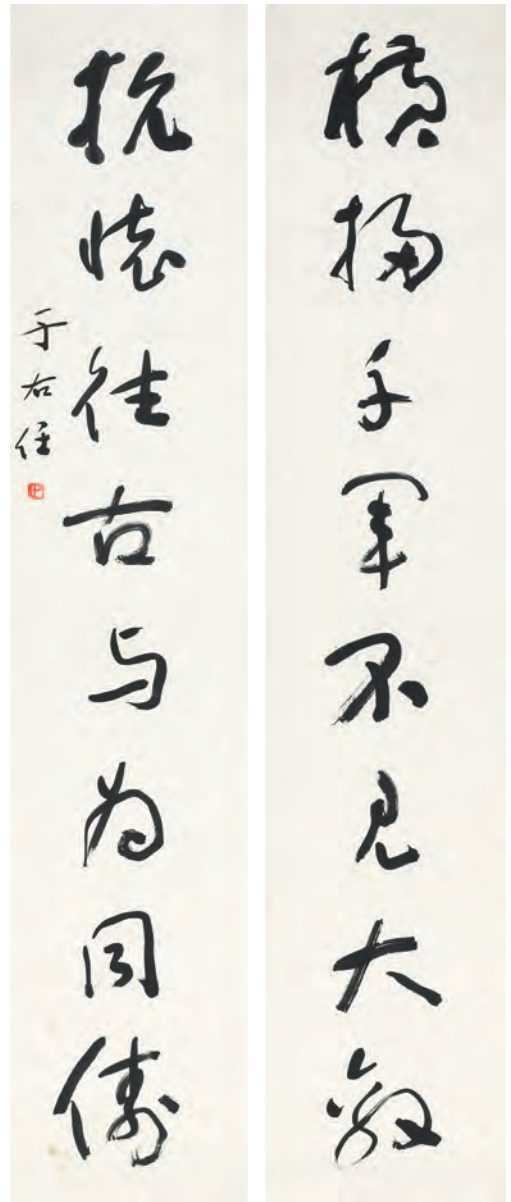 橫掃千軍不見大敵
抗懷往古與為同儔
于右任